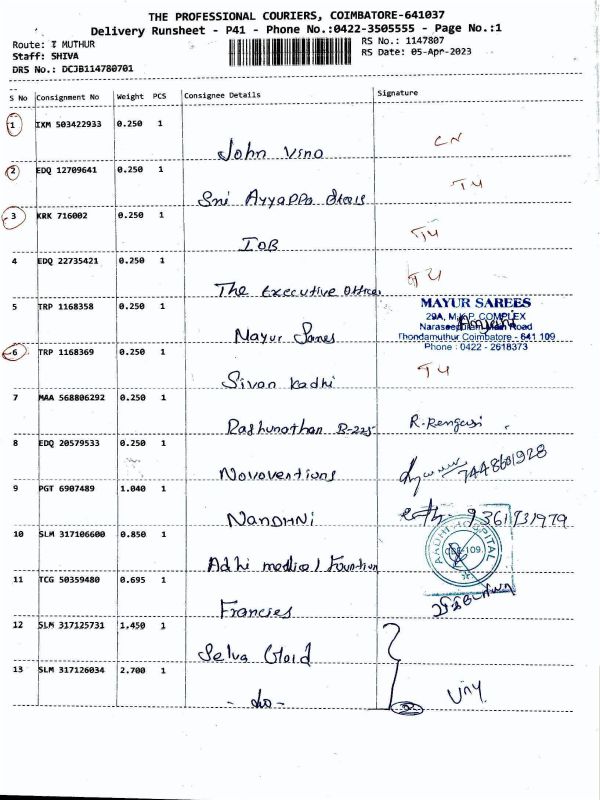 THE PROFESSIONAL COURIERS, COIMBATORE-641037
Delivery Runsheet - P41 - Phone No.:0422-3505555 - Page No.:1
Route: T MUTHUR
RS No.: 1147807
Staff: SHIVA
RS Date: 05-Apr-2023
DRS No.: DCJB114780701
S No Consignment No Weight PCS Consignee Details Signature
1 IXM 503422933 0.250 1
John Vino CN
2 EDQ 12709641 0.250 1
Sri Ayyappa Steels T4
3 KRK 716002 0.250 1
IOB T4
4 EDQ 22735421 0.250 1
The Executive Officer T4
5 TRP 1168358 0.250 1
MAYUR SAREES
29A, M.K.P. COMPLEX
Main Road
Thondamuthur Coimbatore - 641 109
Phone : 0422 - 2618373
Mayur
6 TRP 1168369 0.250 1
Sivan Kadhi T4
7 MAA 568806292 0.250 1
Raghunathan B-225 R. Rengasi
8 EDQ 20579533 0.250 1
Novoventions 7448601928
9 PGT 6907489 1.040 1
NANDHNI 9361731979
10 SLM 317106600 0.850 1
Adhi medical AADHI HOSPITAL
109
11 TCG 50359480 0.695 1
Francies
12 SLM 317125731 1.450 1
Selva
13 SLM 317126034 2.700 1
- do -